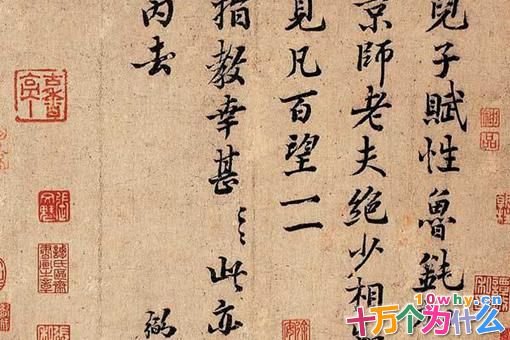 兒子賦性魯鈍
京師老夫絕少相
見凡百望一一
指教幸甚〻此亦
丙去
弼
10why.cn
十万个为什么